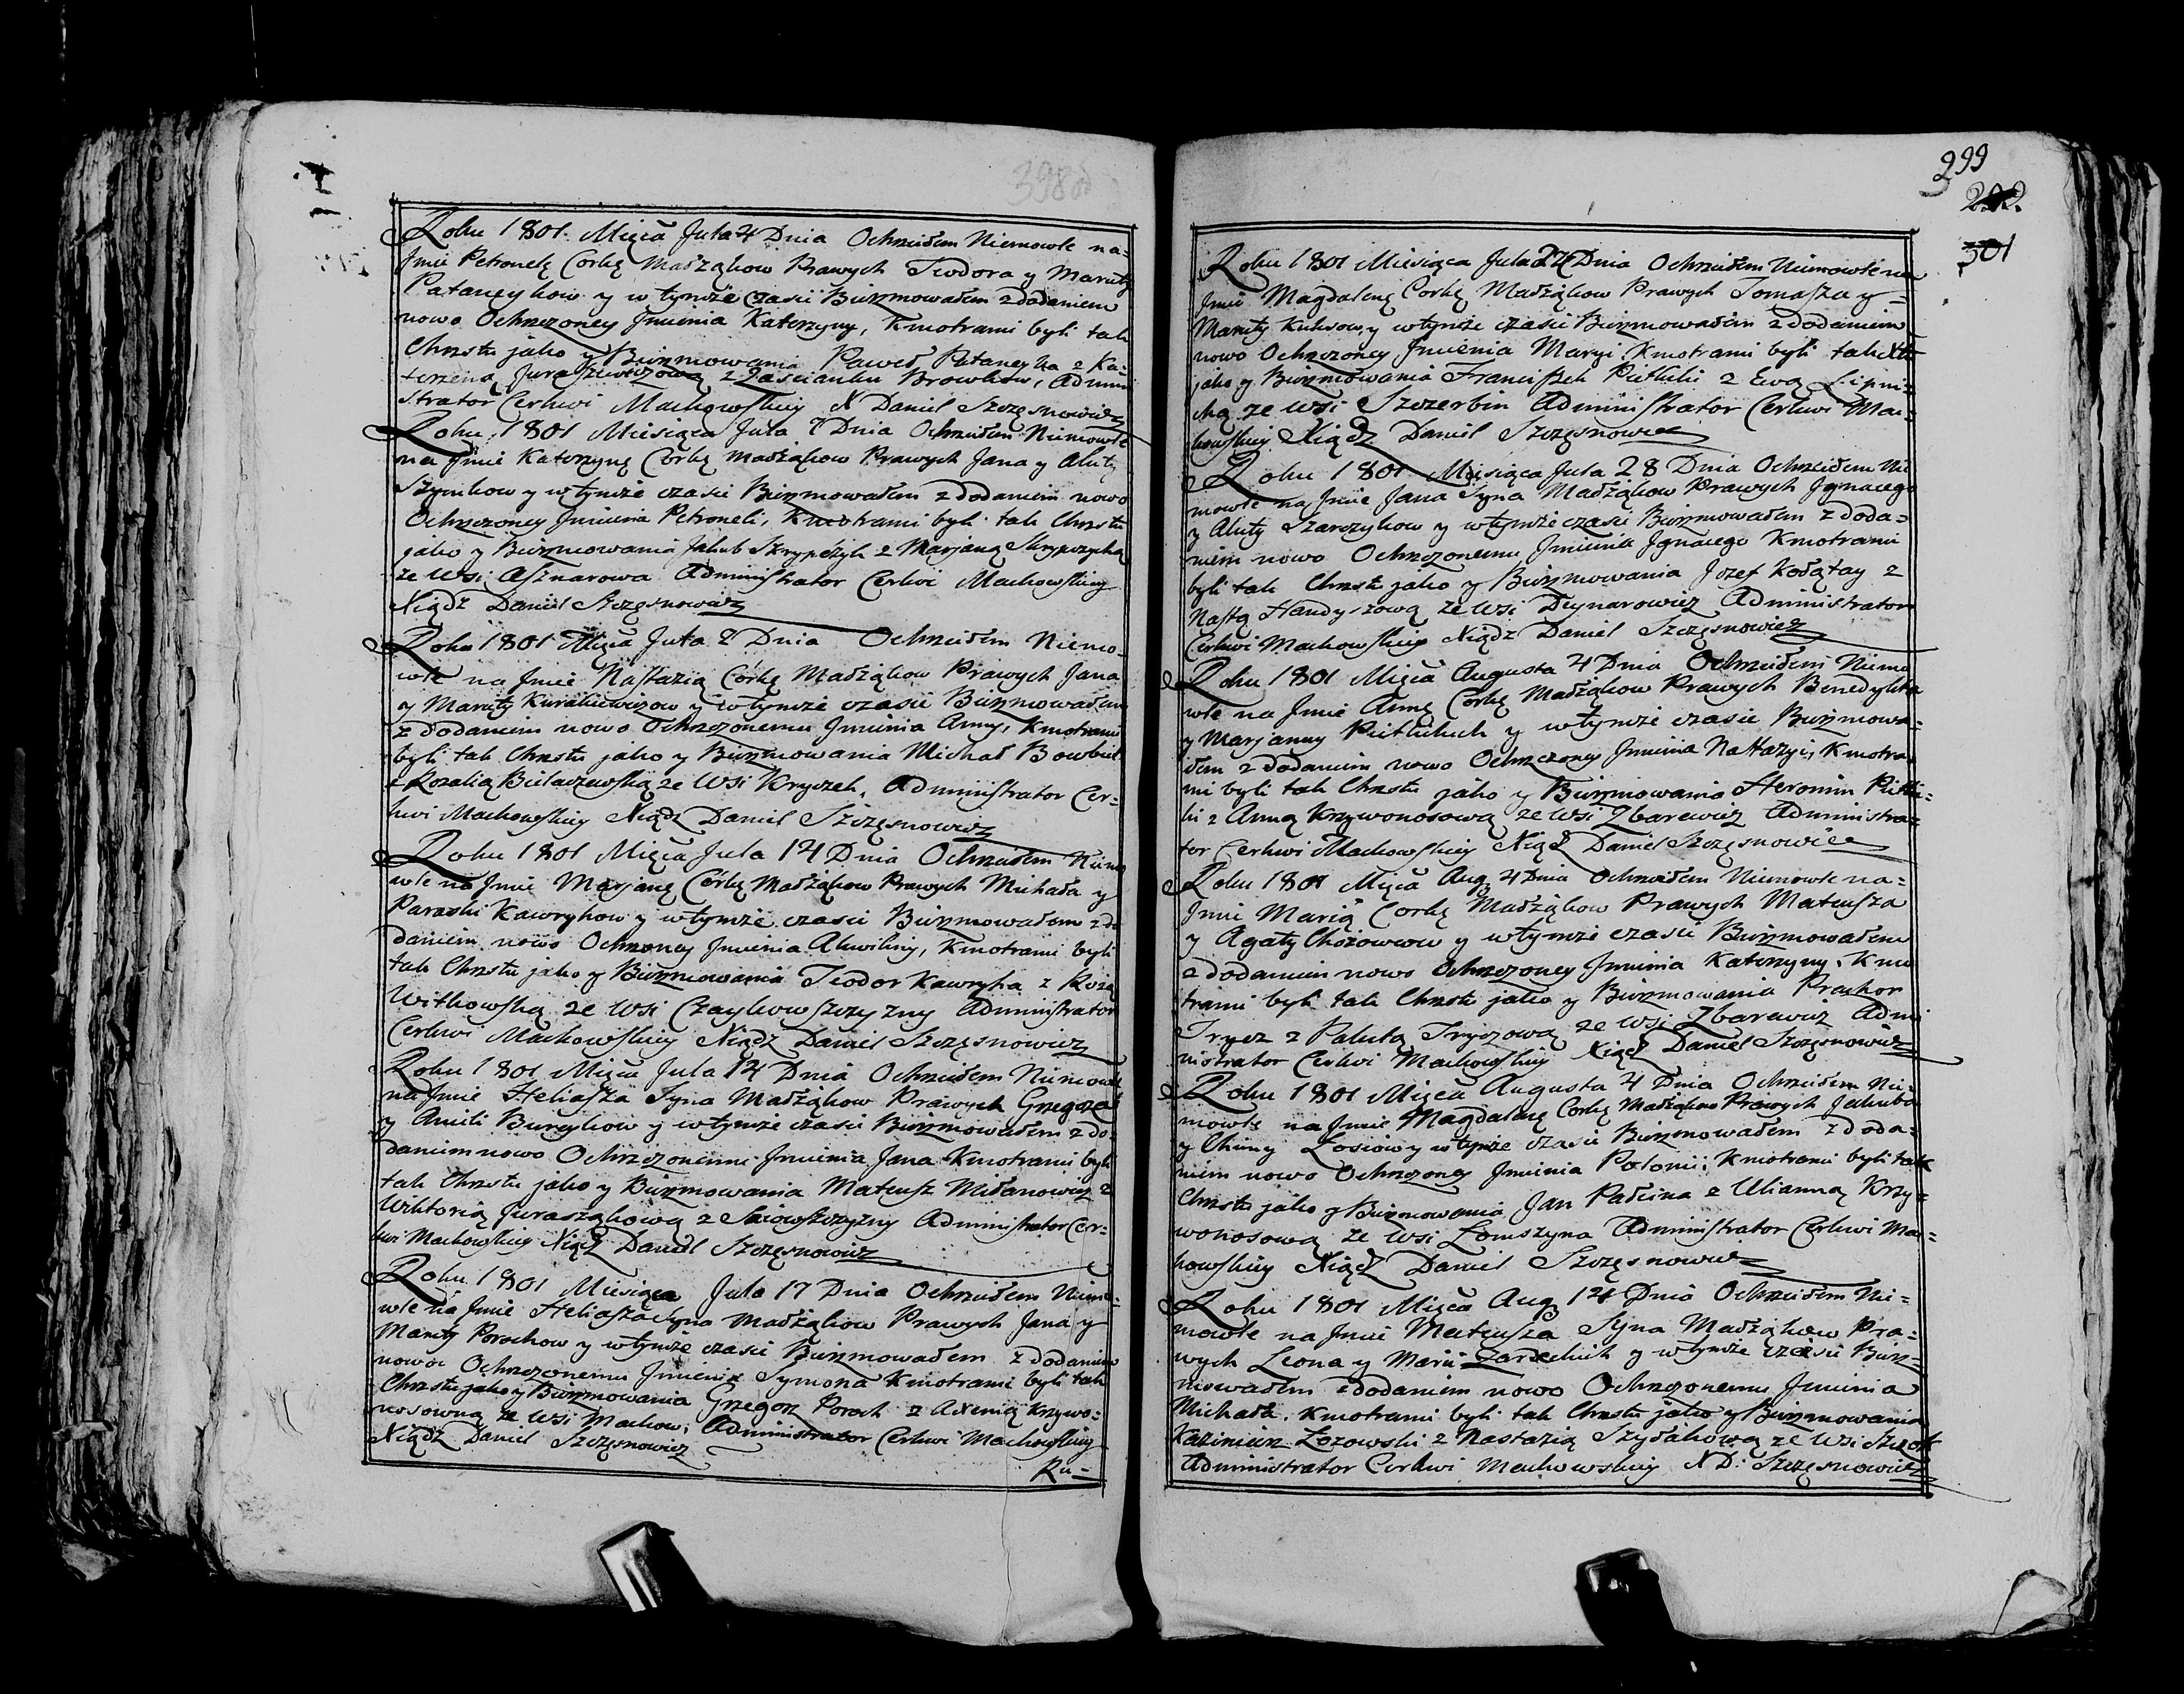 398 od
Roku 1801. Mięca Jula 4 Dnia Ochrzciłem Niemowle na=
Jmie Petronelę Corkę Małżąkow Prawych Teodora y Maruty
Pataneykow y wtymże Czasie Bierzmowałem zdodaniem
nowo Ochrzczoney Jmienia Katerzyny, Kmotrami byli tak
Chrztu jako y Bierzmowania Paweł Pataneyka z Ka=
terzeną Juraszewiczową z Zascianku Browkow, Admini
strator Cerkwi Machowskiey X Daniel Szczęsnowicz
Roku 1801 Miesiąca Jula 7 Dnia Ochrzciłem Niemowle
na Jmie Katerzynę Corkę małżąkow Prawych Jana y Aluty
Szymkow y wtymże czasie Bierzmowałem zdodaniem nowo
Ochrzczoney Jmienia Petroneli, Kmotrami byli tak Chrztu
jako y Bierzmowania Jakub Skrypczyk z Marjaną Skrypczyką
ze Wsi Asznarowa Administrator Cerkwi Machowskiey
Xiądz Daniel Szczęsnowicz
Roku 1801 Mięca Jula 7 Dnia Ochrzciłem Niemo=
wle na Jmie Nastazią Córkę Małżąkow Prawych Jana
y Maruty Kurakiewiczow y wtymże czasie Bierzmowałem
z dodaniem nowo Ochrzczonemu Jmienia Anny, Kmotrami
byli tak Chrztu jako y Bierzmowania Michał Bowbiel
z Rozalią Bielaszewską ze Wsi Kryczek, Administrator Cer=
kwi Machowskiey Xiądz Daniel Szczęsnowicz
Roku 1801 Mięca Jula 14 Dnia Ochrzciłem Niemo
wle na Jmie Marjanę Córkę Małżąkow Prawych Michała y
Paraski Kawrykow y wtymże czasie Bierzmowałem zdo
daniem nowo Ochrzoney Jmienia Akwiliny, Kmotrami byli
tak Chrztu jako y Bierzmowania Teodor Kawryka z Rozą
Witkowską ze Wsi Czaykowszczyzny Administrator
Cerkwi Machowskiey Xiądz Daniel Szczęsnowicz
Roku 1801 Mięca Jula 14 Dnia Ochrzciłem Niemowle
na Jmie Heliasza Syna Małżąkow Prawych Grzegorza
y Amili Bureykow y wtymże czasie Bierzmowałem zdo=
daniem nowo Ochrzczonemu Jmienia Jana Kmotrami byli
tak Chrztu jako y Bierzmowania Mateusz Milanowicz z
Wiktorią Juraszakową z Administrator Cer=
kwi Machowskiey Xiądz Daniel Szczęsnowicz
Roku 1801 Miesiąca Jula 17 Dnia Ochrzciłem Niemo=
wle na Jmie Heliasza Syna Małżąkow Prawych Jana y
Maruty Porochow y wtymże czasie Bierzmowałem zdodaniem
nowo Ochrzczonemu Jmienia Symona Kmotrami byli tak
Chrztu jako y Bierzmowania Grzegorz Poroch z Axenią Krzywo=
nosowną ze Wsi Machow, Administrator Cerkwi Machowskiey
Xiądz Daniel Szczęsnowicz
Ru=
399
292.
301
Roku 1801 Miesiąca Jula 24 Dnia Ochrzciłem Niemowle na
Jmie Magdalenę Corkę Małżąkow Prawych Tomasza y=
Maruty Kuksow, y wtymże czasie Bierzmowałem zdodaniem
nowo Ochrzczoney Jmienia Maryi Kmotrami byli tak Xtu
jako y Bierzmowania Franciszek Pietlicki z Ewą Lipni=
cką ze Wsi Szczerbin Administrator Cerkwi Ma=
chowskiey Xiądz Daniel Szczęsnowicz
Roku 1801 Miesiąca Jula 28 Dnia Ochrzciłem Nie
mowle na Jmie Jana Syna Małżąkow Prawych Jgnacego
y Aluty Szarczykow y wtymże czasie Bierzmowałem zdoda=
niem nowo Ochrzczonemu Jmienia Jgnacego Kmotrami
byli tak Chrztu jako y Bierzmowania Jozef Kołątay z
Nastą Handyszową ze Wsi Deynarowicz Administrator
Cerkwi Machowskiey Xiądz Daniel Szczęsnowicz
Roku 1801 Mięca Augusta 4 Dnia Ochrzciłem Niemo
wle na Jmie Annę Córkę Małżąkow Prawych Benedykta
y Marjanny Pietlickich y wtymże czasie Bierzmowa=
łem zdodaniem nowo Ochrzczoney Jmienia Nastazyi, Kmotra
mi byli tak Chrztu jako y Bierzmowania Heronim Pietli=
cki z Anną Krzywonosową ze Wsi Zbarewicz Administra=
tor Cerkwi Machowskiey Xiądz Daniel Szczęsnowicz
Roku 1801 Mięca Aug 4 Dnia Ochrzciłem Niemowle na=
Jmie Marią Corkę Małżąkow Prawych Mateusza
y Agaty y wtymże czasie Bierzmowałem
zdodaniem nowo Ochrzczoney Jmienia Katerzyny, Kmo
trami byli tak Chrztu jako y Bierzmowania Prochor
Trycz z Palutą Tryczową ze Wsi Zbarewicz Admi
nistrator Cerkwi Machowskiey Xiądz Daniel Szczęsnowicz
Roku 1801 Mięca Augusta 4 Dnia Ochrzciłem Nie=
mowle na Jmie Magdalenę Corkę Małżąkow Prawych Jakuba
y Chimy Łosiow y wtymże czasie Bierzmowałem zdoda=
niem nowo Ochrzczoney Jmienia Polonii, Kmotrami byli tak
Chrztu jako y Bierzmowania Jan Palcina z Ulianną Krzy=
wonosową ze Wsi Łomszyna Administrator Cerkwi Ma=
chowskiey Xiądz Daniel Szczęsnowicz
Roku 1801 Mięca Aug 14 Dnia Ochrzciłem Nie=
mowle na Jmie Mateusza Syna Małżąkow Pra=
wych Leona y Marii Zareckich y wtymże czasie Bierz=
mowałem zdodaniem nowo Ochrzczonemu Jmienia
Michała, Kmotrami byli tak Chrztu jako y Bierzmowania
Kazimierz Łozowski z Nastazią Szydakową ze Wsi
Administrator Cerkwi Machowskiey X D: Szczęsnowicz